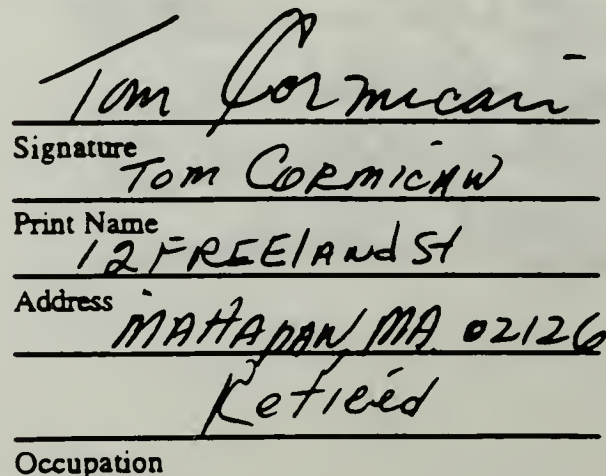 Tom Cormican
Signature
Tom CORMICAN
Print Name
12 FREElANd St
Address
MAHAPAN, MA 02126
Retired
Occupation